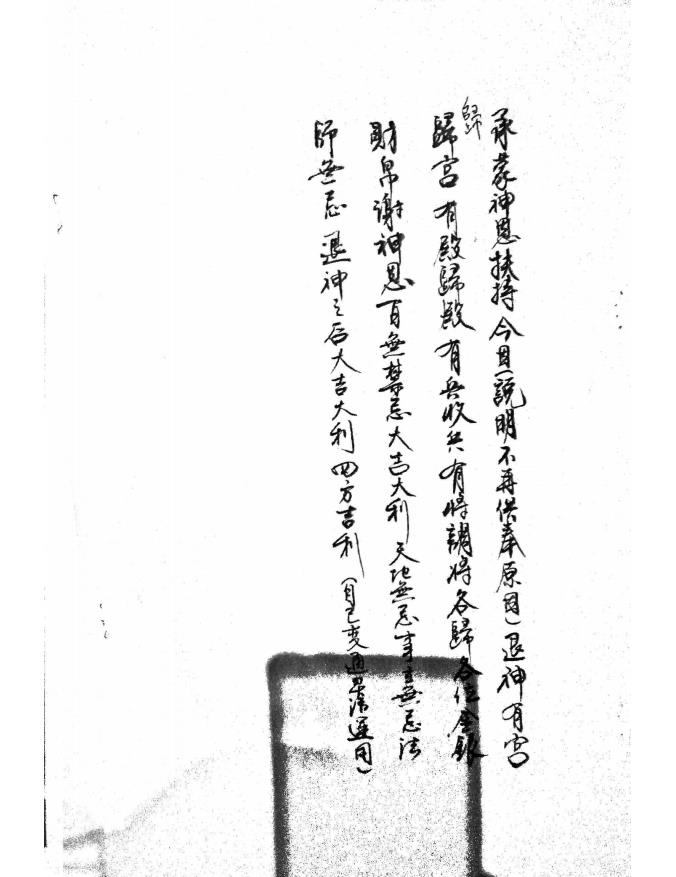 承蒙神恩扶持今日(説明不再供奉原因)退神有宫
歸
歸宫有殿歸殿有兵收兵有將調將各歸各位金銀
財帛謝神恩百無禁忌大吉大利天地無忌事主無忌法
師無忌退神之后大吉大利四方吉利(自己变通 选用)